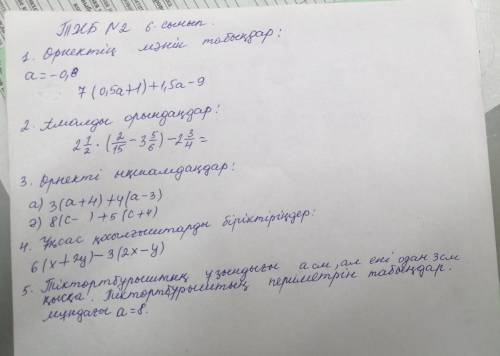 ТЖБ №2 6. сынып.
1. Өрнектің мәнін табыңдар:
a=-0,8
7(0,5a+1)+1,5a-9
2. Амалды орындаңдар:
2 1/2 · (2/15 - 3 5/6) - 2 3/4 =
3. Өрнекті ықшамдаңдар:
а) 3(a+4)+4(a-3)
ә) 8(c- )+5(c+4)
4. Ұқсас қосылғыштарды біріктіріңдер:
6(x+2y)-3(2x-y)
5. Тіктөртбұрыштың ұзындығы a см, ал ені одан 3см
қысқа. Тіктөртбұрыштың периметрін табыңдар.
мұндағы a=8.